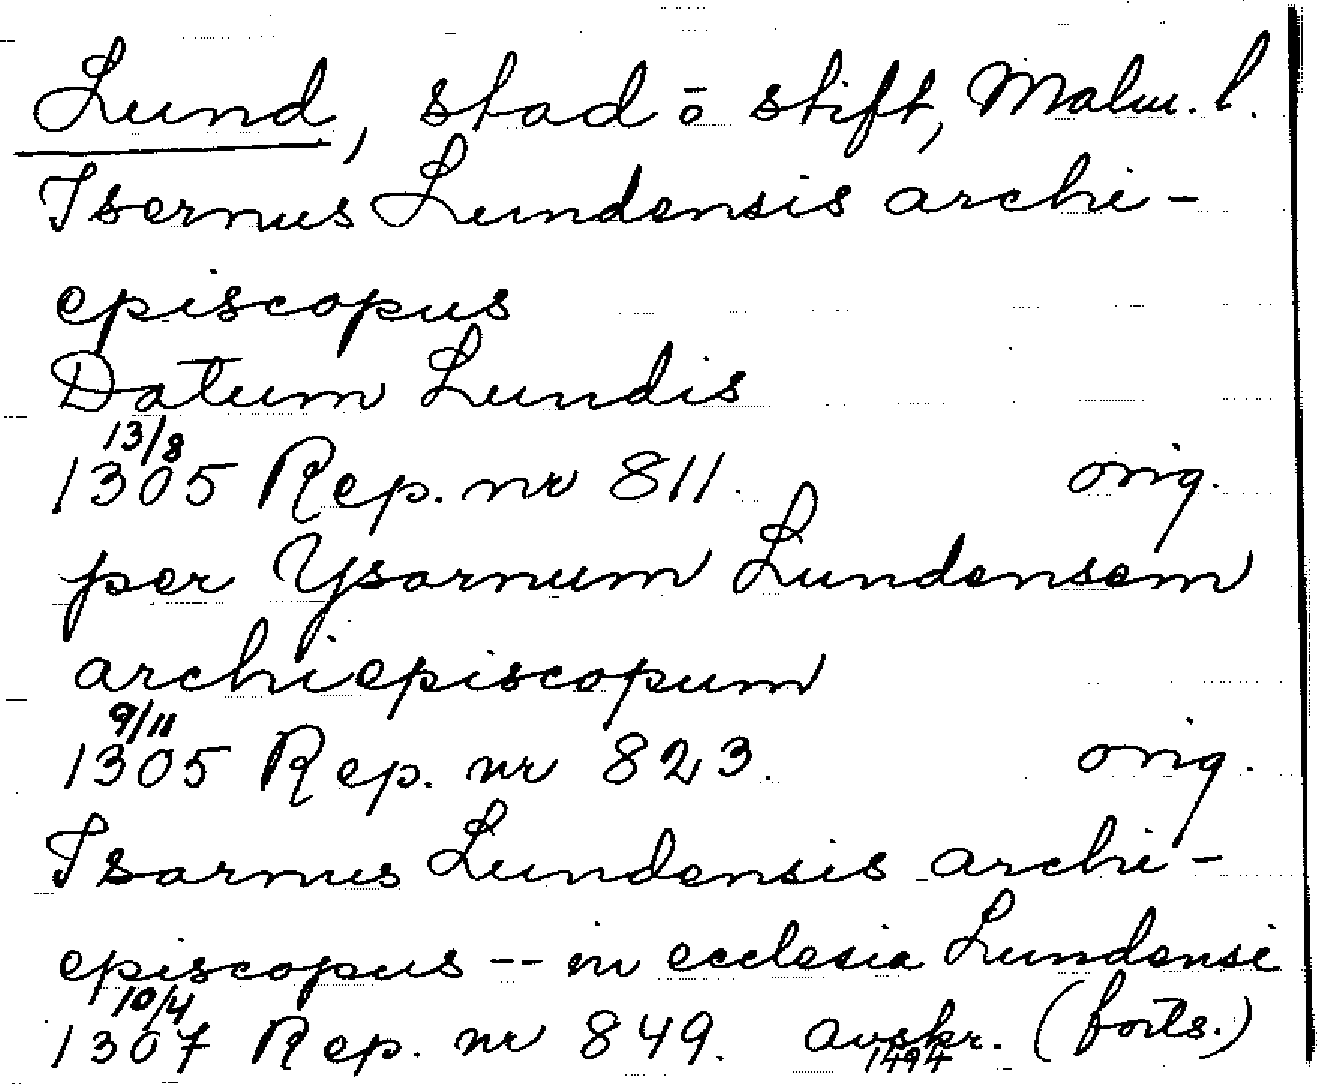 Lund, stad o stift, Malm. l.
Isernus Lundensis archi-
episcopus
Datum Lundis
13/8
1305 Rep. nr 811. orig.
per Ysarnum Lundensem
archiepiscopum
9/11
1305 Rep. nr 823. orig.
Isarnus Lundensis archi-
episcopus -- in ecclesia Lundensi
10/4
1307 Rep. nr 849. avskr. (forts.)
1494